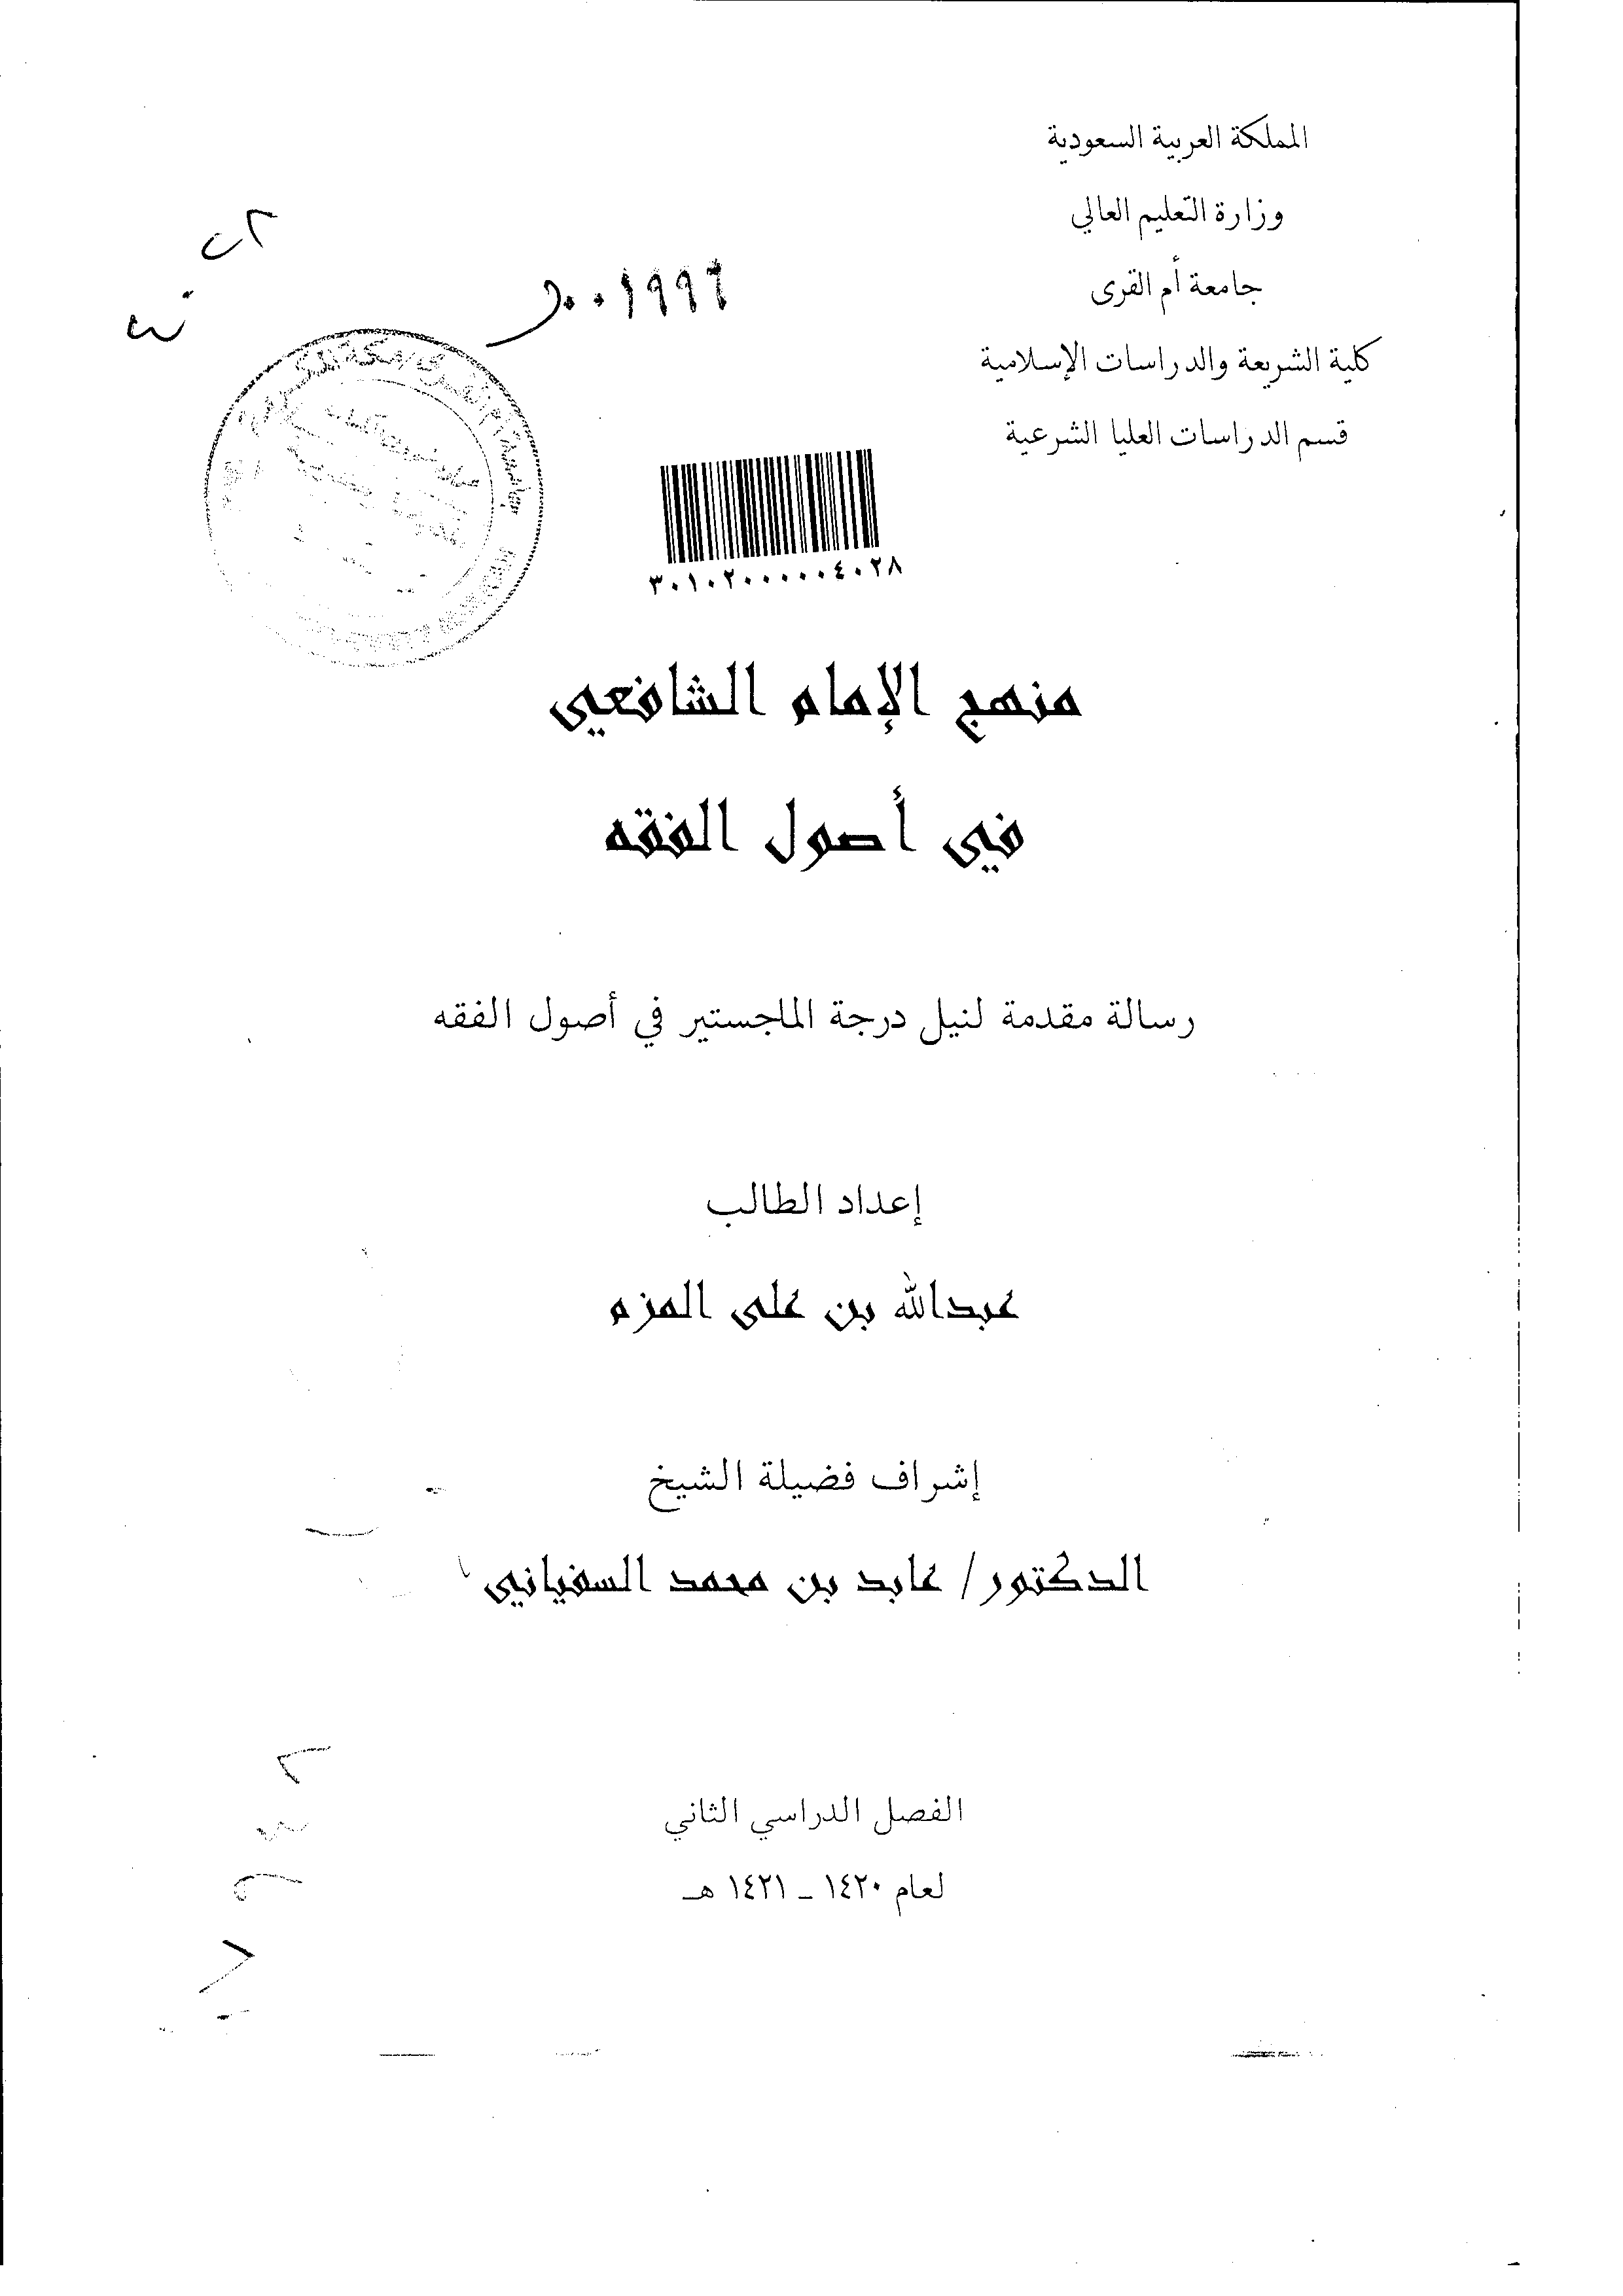 المملكة العربية السعودية
وزارة التعليم العالي
جامعة أم القرى
كلية الشريعة والدراسات الإسلامية
قسم الدراسات العليا الشرعية
٠٠١٩٩٦
٣٠١٠٢٠٠٠٠٠٤٠٢٨
منهج الإمام الشافعي
في أصول الفقه
رسالة مقدمة لنيل درجة الماجستير في أصول الفقه
إعداد الطالب
عبدالله بن علي المزم
إشراف فضيلة الشيخ
الدكتور/ عابد بن محمد السفياني
الفصل الدراسي الثاني
لعام ١٤٢٠ - ١٤٢١ هـ